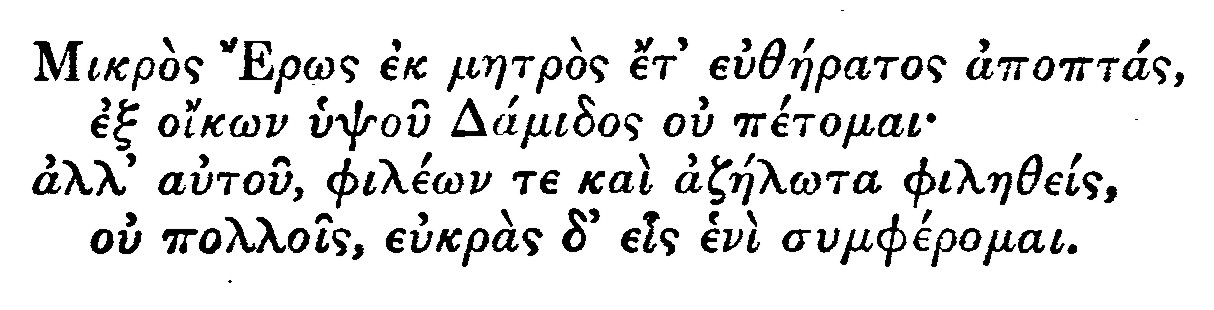 Μικρὸς Ἔρως ἐκ μητρὸς ἔτ’ εὐθήρατος ἀποπτάς,
ἐξ οἴκων ὑψοῦ Δάμιδος οὐ πέτομαι·
ἀλλ’ αὐτοῦ, φιλέων τε καὶ ἀζήλωτα φιληθείς,
οὐ πολλοῖς, εὐκρὰς δ’ εἷς ἑνὶ συμφέρομαι.